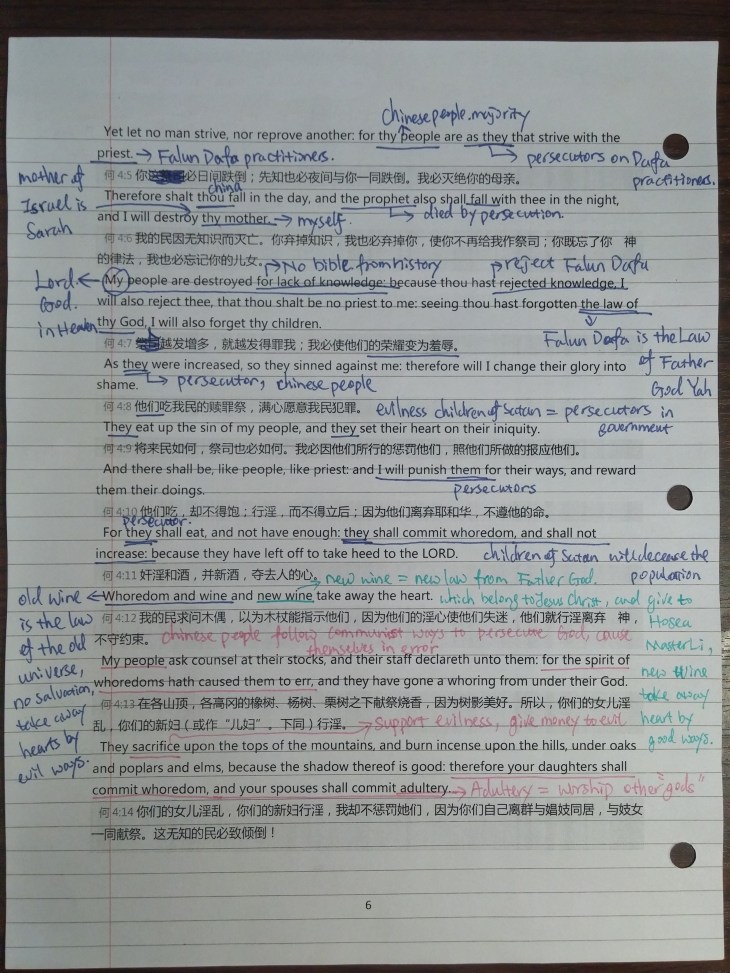 chinese people. majority
Yet let no man strive, nor reprove another: for thy people are as they that strive with the
priest. → Falun Dafa practitioners.
persecutors on Dafa
practitioners.
mother of
Israel is
Sarah
何 4:5 你 必日间跌倒；先知也必夜间与你一同跌倒。我必灭绝你的母亲。
china
Therefore shalt thou fall in the day, and the prophet also shall fall with thee in the night,
and I will destroy thy mother. → myself.
died by persecution.
何 4:6 我的民因无知识而灭亡。你弃掉知识，我也必弃掉你，使你不再给我作祭司；你既忘了你 神
的律法，我也必忘记你的儿女。
No bible from history
reject Falun Dafa
Lord.
God.
in Heaven
My people are destroyed for lack of knowledge: because thou hast rejected knowledge, I
will also reject thee, that thou shalt be no priest to me: seeing thou hast forgotten the law of
thy God, I will also forget thy children.
Falun Dafa is the Law
of Father
God Yah
何 4:7 越发增多，就越发得罪我；我必使他们的荣耀变为羞辱。
As they were increased, so they sinned against me: therefore will I change their glory into
shame.
persecutor, chinese people
何 4:8 他们吃我民的赎罪祭，满心愿意我民犯罪。
evilness children of Satan = persecutors in
government
They eat up the sin of my people, and they set their heart on their iniquity.
何 4:9 将来民如何，祭司也必如何。我必因他们所行的惩罚他们，照他们所做的报应他们。
And there shall be, like people, like priest: and I will punish them for their ways, and reward
them their doings.
persecutors
何 4:10 他们吃，却不得饱；行淫，而不得立后；因为他们离弃耶和华，不遵他的命。
persecutor.
For they shall eat, and not have enough: they shall commit whoredom, and shall not
increase: because they have left off to take heed to the LORD.
children of Satan will decease the
population
何 4:11 奸淫和酒，并新酒，夺去人的心。
new wine = new law from Father God.
Whoredom and wine and new wine take away the heart.
which belong to Jesus Christ, and give to
Hosea
Master Li,
new wine
take away
heart by
good ways.
old wine
is the law
of the old
universe,
no salvation,
take away
hearts by
evil ways.
何 4:12 我的民求问木偶，以为木杖能指示他们，因为他们的淫心使他们失迷，他们就行淫离弃 神，
不守约束。
chinese people follow communist ways to persecute God, cause
themselves in error
My people ask counsel at their stocks, and their staff declareth unto them: for the spirit of
whoredoms hath caused them to err, and they have gone a whoring from under their God.
何 4:13 在各山顶，各高冈的橡树、杨树、栗树之下献祭烧香，因为树影美好。所以，你们的女儿淫
乱，你们的新妇（或作“儿妇”。下同）行淫。
support evilness, give money to evil
They sacrifice upon the tops of the mountains, and burn incense upon the hills, under oaks
and poplars and elms, because the shadow thereof is good: therefore your daughters shall
commit whoredom, and your spouses shall commit adultery.
Adultery = worship other "gods"
何 4:14 你们的女儿淫乱，你们的新妇行淫，我却不惩罚她们，因为你们自己离群与娼妓同居，与妓女
一同献祭。这无知的民必致倾倒！
6